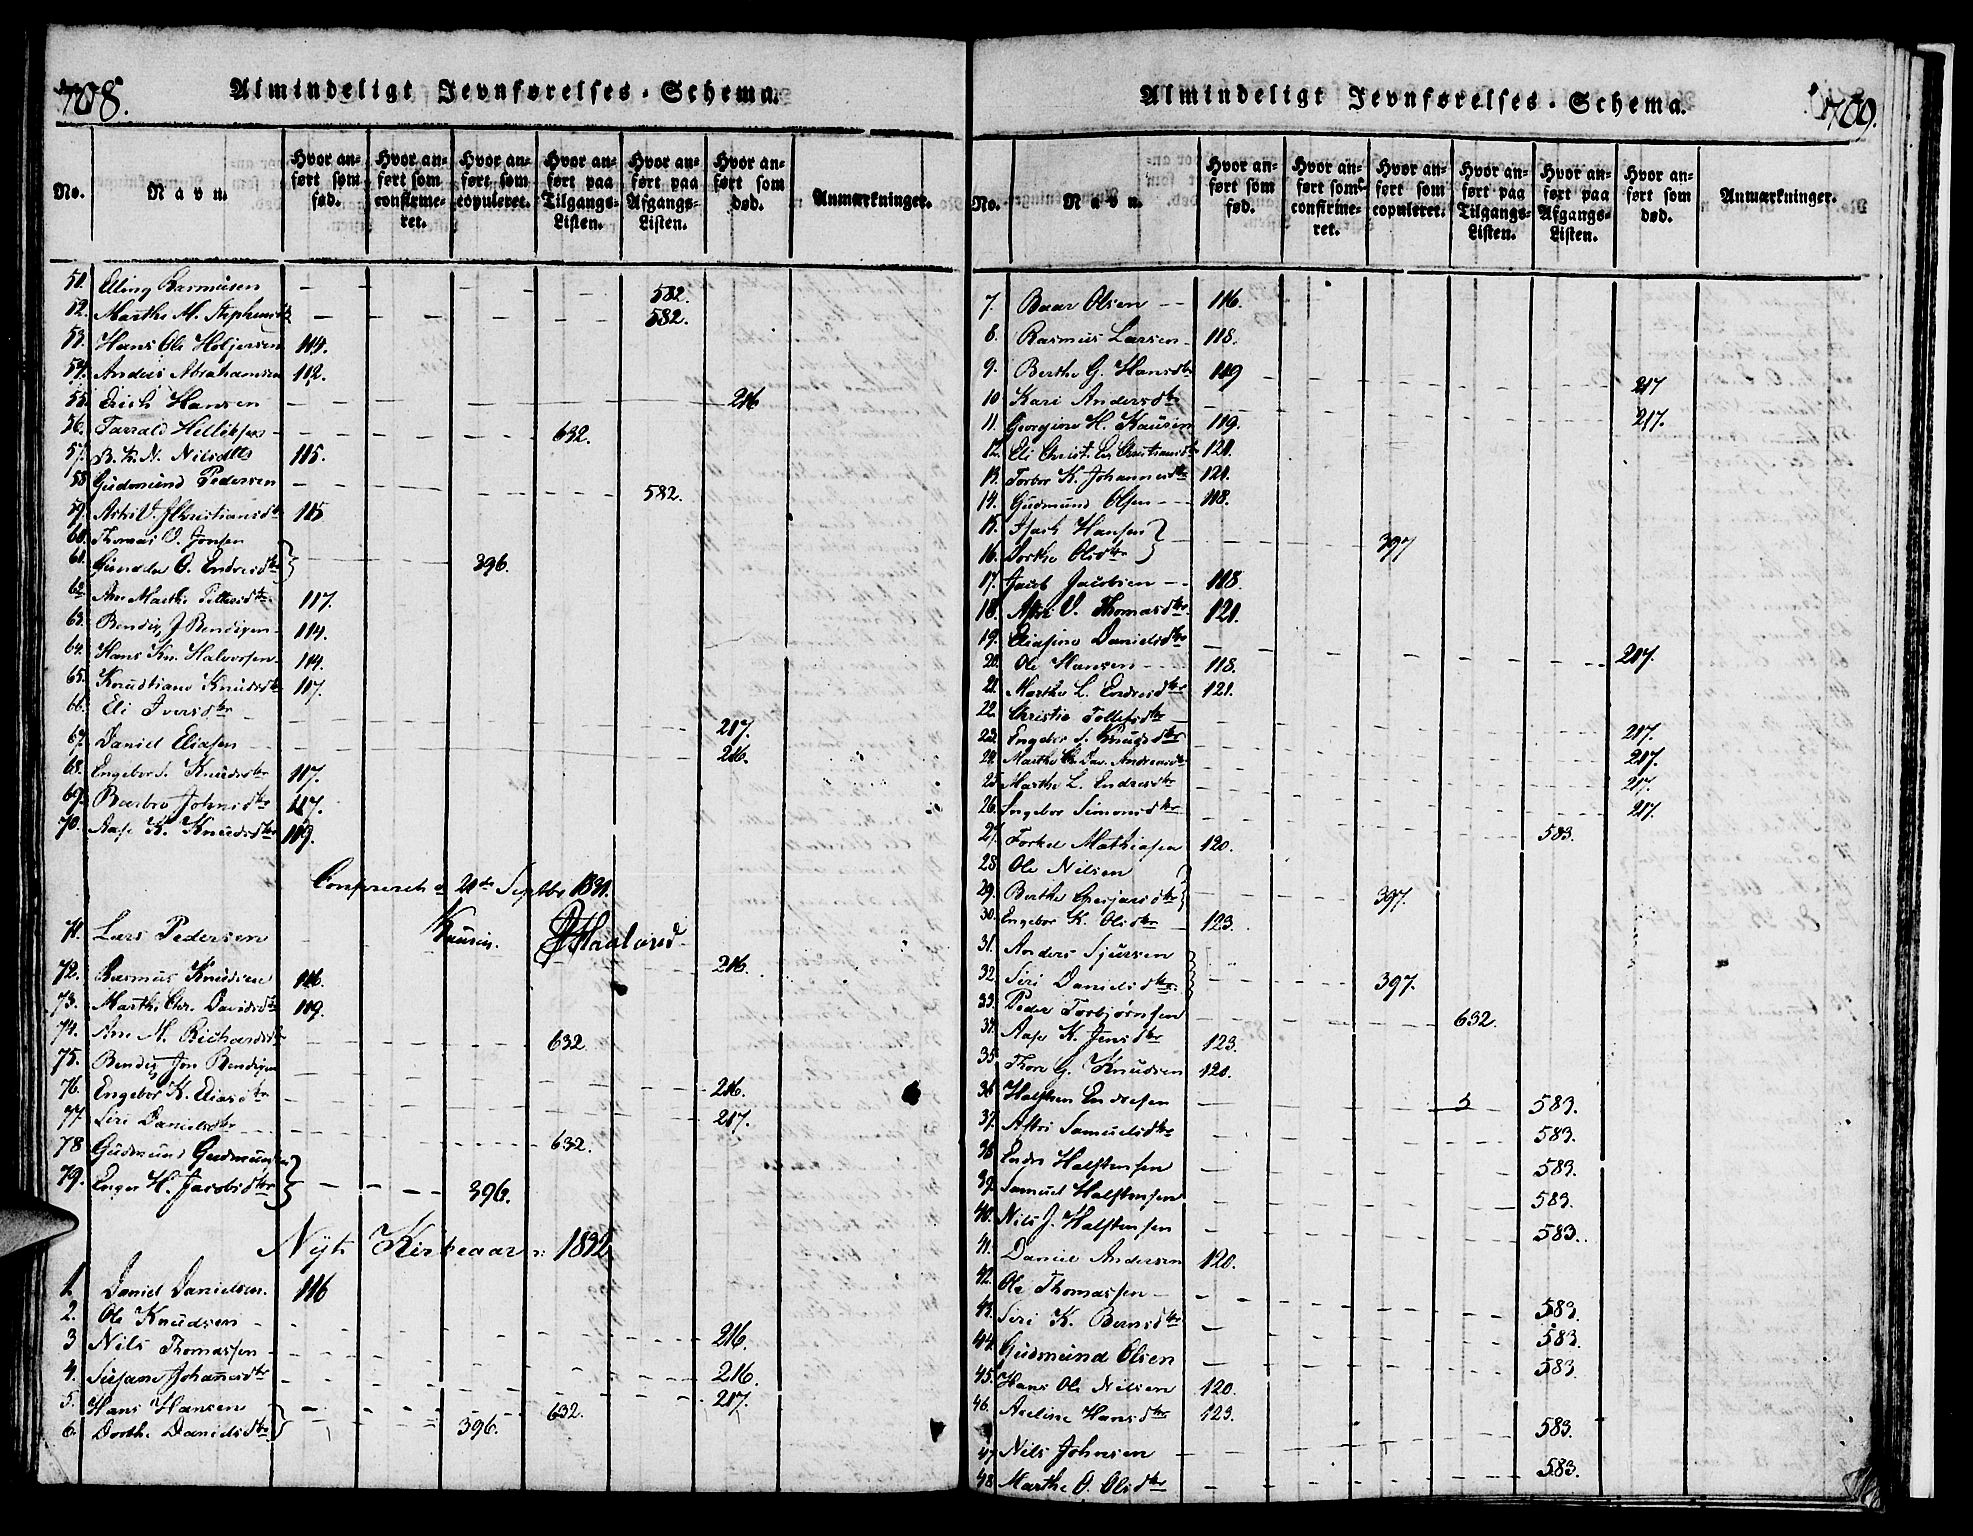 708.
Almindeligt Jevnførelses-Schema.
No.
Navn.
Hvor anført som fød.
Hvor anført som confirmeret.
Hvor anført som copuleret.
Hvor anført paa Tilgangs-Listen.
Hvor anført paa Afgangs-Listen.
Hvor anført som død.
Anmærkninger.
51. Elling Rasmusen 582.
52. Marthe M. 582.
53. Hans Ole Holjersen 114.
54. Anders Abrahamsen 112.
55. Erich Hansen 216
56. Tarrald 632.
57. B. K. N. Nilsdtr 115.
58 Gudmund Pedersen 582.
59. Christiansdtr 115
60. Thomas O. Jonsen
61. Gundla O. Endresdtr 396.
62. Ane Marthe Tollefsdtr 117.
63. Bendix J Bendixen 114.
64. Hans Kn. Halvorsen 114.
65. Knudtiane Knudsdtr 117.
66. Eli Iversdtr 217.
67. Daniel Eliasen 216.
68. Engebor S. Knudsdtr 117.
69. Barbro Johnsdtr 117.
70. Aase K. Knudsdtr 119.
Confereret d 21de Septbr 1831.
Kausin. Haaland
71. Lars Pedersen 216.
72. Rasmus Knudsen 116.
73. Marthe Chr. Davidsdtr 119.
74. Ane M. Richardsdtr 632.
75. Bendix Jon Bendixen 216.
76. Engebor K. Eliasdtr 217.
77. Siri Danielsdtr 632.
78 Gudmund Gudmundsen
79. Inger H. Jacobsdtr 396.
Nyt Kirkeaar 1832
1. Daniel Danielsen. 116
2. Ole Knudsen 216.
3 Nils Thomassen 216.
4. Johannesdtr 217.
5. Hans Hansen 632.
6. Dorthe Danielsdtr 396.
709.
Almindeligt Jevnførelses-Schema.
No.
Navn.
Hvor anført som fød.
Hvor anført som confirmeret.
Hvor anført som copuleret.
Hvor anført paa Tilgangs-Listen.
Hvor anført paa Afgangs-Listen.
Hvor anført som død.
Anmærkninger.
7. Baar Olsen 116.
8. Rasmus Larsen 118.
9. Berthe G. Hansdtr 119 217
10 Kari Andersdtr 217.
11. Georgine H. Kausin 119.
12. Eli Christ. Christiansdtr 121.
13. Torbor K. Johannesdtr 121.
14. Gudmund Olsen 118.
15. Isach Hansen
16. Dorthe Olsdtr 397
17. Jacob Jacobsen 118.
18. V. Thomasdtr 121.
19. Eliasine Danielsdtr 217.
20. Ole Hansen 118.
21. Marthe L. Endresdtr 121.
22. Christie Tollefsdtr 217.
23. Engebor S. Knudsdtr 217.
24. Marthe Andreasdtr 217.
25. Marthe L. Endresdtr 217.
26. Ingebor Simonsdtr 583.
27. Torkel Mathiasen 120.
28. Ole Nilsen
29. Berthe 397.
30. Engebor K. Olsdtr 123.
31. Anders Sjursen
32 Siri Danielsdtr 397.
33. Peder Torbjørnsen 632.
34. Aase K. Jensdtr 123.
35. Thore G. Knudsen 120.
36. Halsten Endresen 5 583.
37. Samuelsdtr 583.
38. Endre Halstensen 583.
39. Samuel Halstensen 583.
40. Nils J. Halstensen 583.
41. Daniel Andersen 120.
42. Ole Thomassen 583.
43. Siri K. Berntsdtr 583.
44. Gudmund Olsen 583.
45. Hans Ole Nilsen 120.
46. Axeline Hansdtr 123.
47 Nils Johnsen 583.
48. Marthe O. Olsdtr 583.